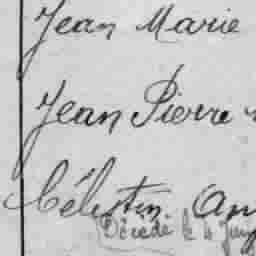 Jean Marie
Jean Pierre
Célestin
Décédé le 4